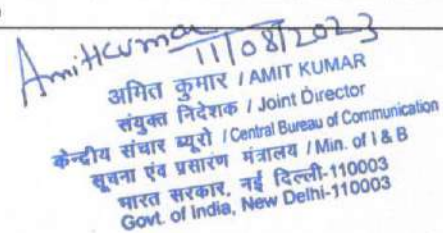 Amit Kumar
11/08/2023
अमित कुमार / AMIT KUMAR
संयुक्त निदेशक / Joint Director
केन्द्रीय संचार ब्यूरो / Central Bureau of Communication
सूचना एंव प्रसारण मंत्रालय / Min. of I & B
भारत सरकार, नई दिल्ली-110003
Govt. of India, New Delhi-110003